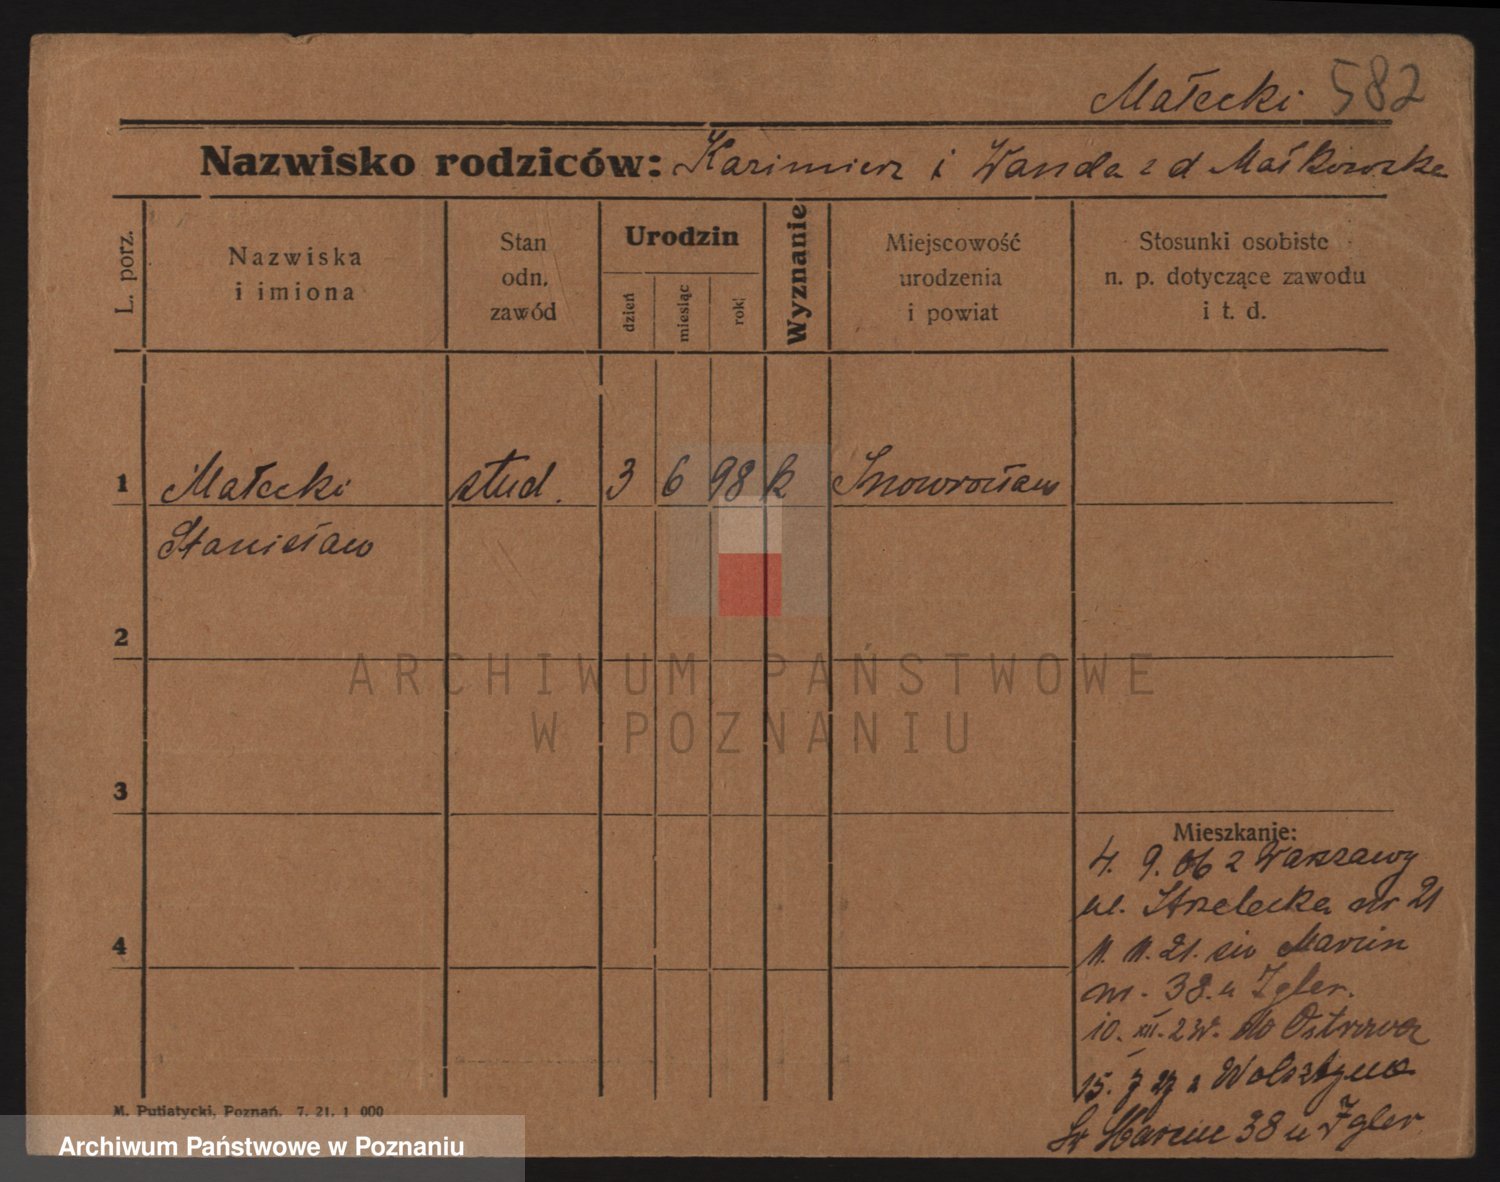 Małecki 582
Nazwisko rodziców: Kazimierz i Wanda z d Małkowska
L. porz.
Nazwiska
i imiona
Stan
odn.
zawód
Urodzin
dzień
miesiąc
rok
Wyznanie
Miejscowość
urodzenia
i powiat
Stosunki osobiste
n. p. dotyczące zawodu
i t. d.
1 Małecki stud. 3 6 98 k Inowrocław
Stanisław
2
ARCHIWUM PAŃSTWOWE
W POZNANIU
3
Mieszkanie:
4. 9. z Warszawy
ul. Strzelecka nr 21
4
11. 11. 21. św Marcin
m. 38. u Igler.
10. XII. 23r. do Ostrowa
15. 7 27 z Wolsztyna
Św Marcin 38 u Igler
M. Putiatycki, Poznań. 7. 21. 1 000
Archiwum Państwowe w Poznaniu